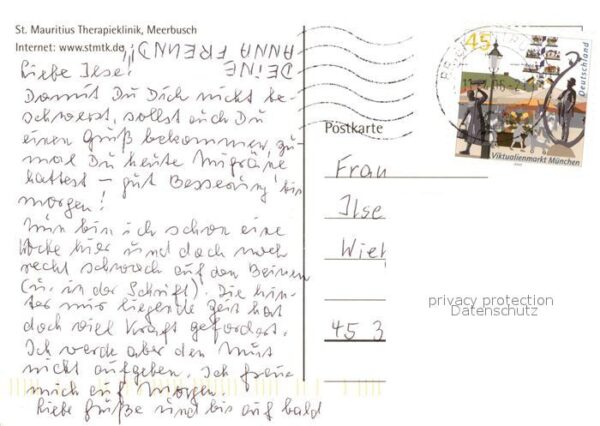 St. Mauritius Therapieklinik, Meerbusch
Internet: www.stmtk.de
DEINE
ANNA FREUND
Liebe Ilse!
Damit Du Dich nicht be-
schwerst, sollst auch Du
einen Gruß bekommen, zu-
mal Du heute Migräne
hattest – gut Besserung bis
morgen!
Nun bin ich schon eine
Woche hier und doch noch
recht schwach auf den Beinen
(u. in der Schrift). Die hin-
ter mir liegende Zeit hat
doch viel Kraft gefordert.
Ich werde aber den Mut
nicht aufgeben. Ich freue
mich auf morgen.
Liebe Grüße und bis auf bald
Postkarte
Frau
Ilse
45 3
45
Deutschland
Viktualienmarkt München
privacy protection
Datenschutz